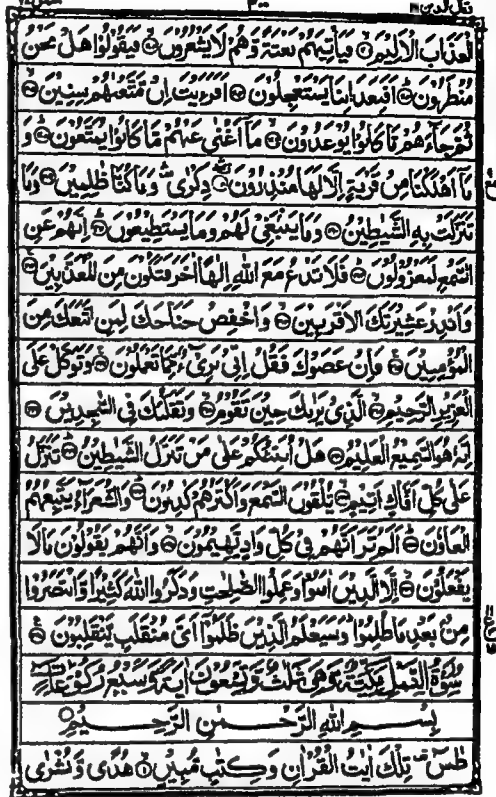 الْعَذَابَ الْاَلِیْمَ فَیَاْتِیَهُمْ بَغْتَةً وَّهُمْ لَا یَشْعُرُوْنَ فَیَقُوْلُوْا هَلْ نَحْنُ
مُنْظَرُوْنَ اَفَبِعَذَابِنَا یَسْتَعْجِلُوْنَ اَفَرَءَیْتَ اِنْ مَّتَّعْنٰهُمْ سِنِیْنَ
ثُمَّ جَآءَهُمْ مَّا كَانُوْا یُوْعَدُوْنَ مَاۤ اَغْنٰى عَنْهُمْ مَّا كَانُوْا یُمَتَّعُوْنَ وَ
مَاۤ اَهْلَكْنَا مِنْ قَرْیَةٍ اِلَّا لَهَا مُنْذِرُوْنَ ذِكْرٰى وَمَا كُنَّا ظٰلِمِیْنَ وَمَا
تَنَزَّلَتْ بِهِ الشَّیٰطِیْنُ وَمَا یَنْۢبَغِیْ لَهُمْ وَمَا یَسْتَطِیْعُوْنَ اِنَّهُمْ عَنِ
السَّمْعِ لَمَعْزُوْلُوْنَ فَلَا تَدْعُ مَعَ اللّٰهِ اِلٰهًا اٰخَرَ فَتَكُوْنَ مِنَ الْمُعَذَّبِیْنَ
وَاَنْذِرْ عَشِیْرَتَكَ الْاَقْرَبِیْنَ وَاخْفِضْ جَنَاحَكَ لِمَنِ اتَّبَعَكَ مِنَ
الْمُؤْمِنِیْنَ فَاِنْ عَصَوْكَ فَقُلْ اِنِّیْ بَرِیْٓءٌ مِّمَّا تَعْمَلُوْنَ وَتَوَكَّلْ عَلَى
الْعَزِیْزِ الرَّحِیْمِ الَّذِیْ یَرٰىكَ حِیْنَ تَقُوْمُ وَتَقَلُّبَكَ فِی السّٰجِدِیْنَ
اِنَّهٗ هُوَ السَّمِیْعُ الْعَلِیْمُ هَلْ اُنَبِّئُكُمْ عَلٰى مَنْ تَنَزَّلُ الشَّیٰطِیْنُ تَنَزَّلُ
عَلٰى كُلِّ اَفَّاكٍ اَثِیْمٍ یُّلْقُوْنَ السَّمْعَ وَاَكْثَرُهُمْ كٰذِبُوْنَ وَالشُّعَرَآءُ یَتَّبِعُهُمُ
الْغَاوٗنَ اَلَمْ تَرَ اَنَّهُمْ فِیْ كُلِّ وَادٍ یَّهِیْمُوْنَ وَاَنَّهُمْ یَقُوْلُوْنَ مَا لَا
یَفْعَلُوْنَ اِلَّا الَّذِیْنَ اٰمَنُوْا وَعَمِلُوا الصّٰلِحٰتِ وَذَكَرُوا اللّٰهَ كَثِیْرًا وَّانْتَصَرُوْا
مِنْۢ بَعْدِ مَا ظُلِمُوْا وَسَیَعْلَمُ الَّذِیْنَ ظَلَمُوْۤا اَیَّ مُنْقَلَبٍ یَّنْقَلِبُوْنَ
سُوْرَةُ النَّمْلِ مَكِّیَّةٌ وَّهِیَ ثَلٰثٌ وَّتِسْعُوْنَ اٰیَةً وَّسَبْعُ رُكُوْعَاتٍ
بِسْمِ اللّٰهِ الرَّحْمٰنِ الرَّحِیْمِ
طٰسٓ تِلْكَ اٰیٰتُ الْقُرْاٰنِ وَكِتَابٍ مُّبِیْنٍ هُدًى وَّبُشْرٰى